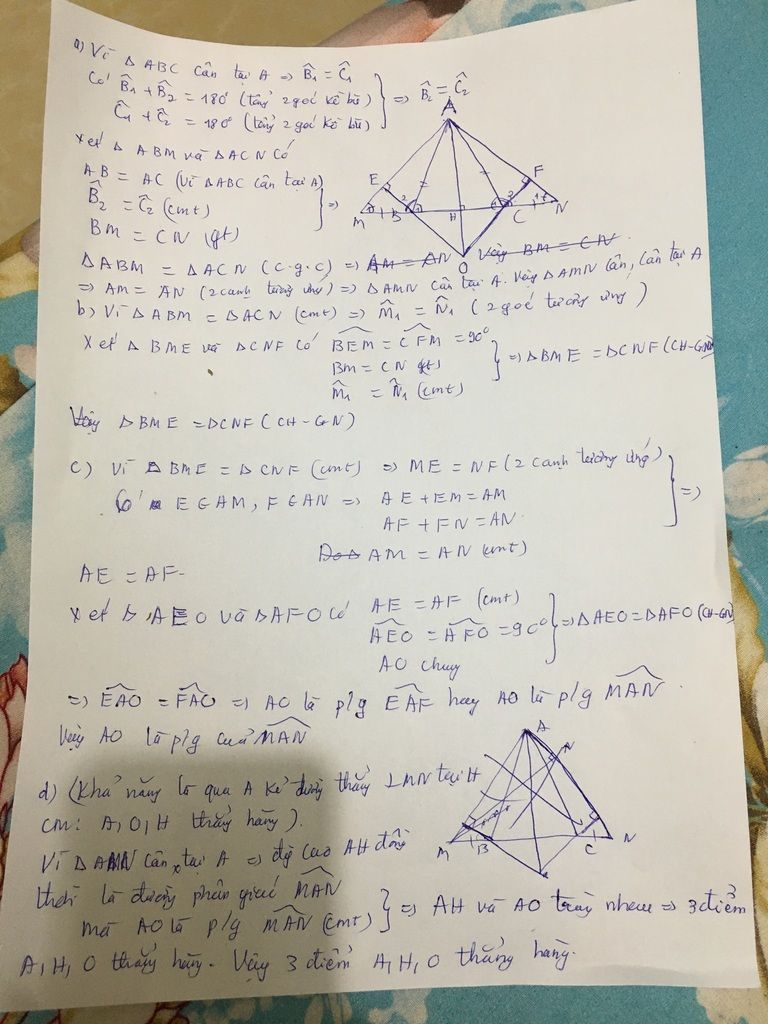 a) Vì Δ ABC cân tại A => B̂₁ = Ĉ₁
Có B̂₁ + B̂₂ = 180° (tổng 2 góc kề bù) } => B̂₂ = Ĉ₂
Ĉ₁ + Ĉ₂ = 180° (tổng 2 góc kề bù)
* xét Δ ABM và Δ ACN có
AB = AC (vì ΔABC cân tại A)
B̂₂ = Ĉ₂ (cmt) } =>
BM = CN (gt)
A
E
F
M
B
H
C
N
O
ΔABM = ΔACN (c.g.c) => AM = AN Vậy BM = CN
=> AM = AN (2 cạnh tương ứng) => ΔAMN cân tại A. Vậy ΔAMN cân, cân tại A
b) Vì Δ ABM = ΔACN (cmt) => M̂₁ = N̂₁ (2 góc tương ứng)
Xét Δ BME và ΔCNF có BEM = CFM = 90°
BM = CN (gt) } => ΔBME = ΔCNF (CH-GN)
M̂₁ = N̂₁ (cmt)
Vậy Δ BME = ΔCNF (CH-GN)
c) Vì Δ BME = Δ CNF (cmt) => ME = NF (2 cạnh tương ứng)
Có E ∈ AM, F ∈ AN => AE + EM = AM } =>
AF + FN = AN
Do Δ AM = AN (cmt)
AE = AF
Xét Δ AEO và ΔAFO có AE = AF (cmt)
AEO = AFO = 90° } => ΔAEO = ΔAFO (CH-GN)
AO chung
=> EAO = FAO => AO là p/g EAF hay AO là p/g MAN.
Vậy AO là p/g của MAN
d) (Khả năng là qua A kẻ đường thẳng ⊥MN tại H
cm: A, O, H thẳng hàng).
A
N
M
B
C
N
Vì ΔAMN cân tại A => độ cao AH đồng
thời là đường phân giác MAN
mà AO là p/g MAN (cmt) } => AH và AO trùng nhau => 3 điểm
A, H, O thẳng hàng. Vậy 3 điểm A, H, O thẳng hàng.